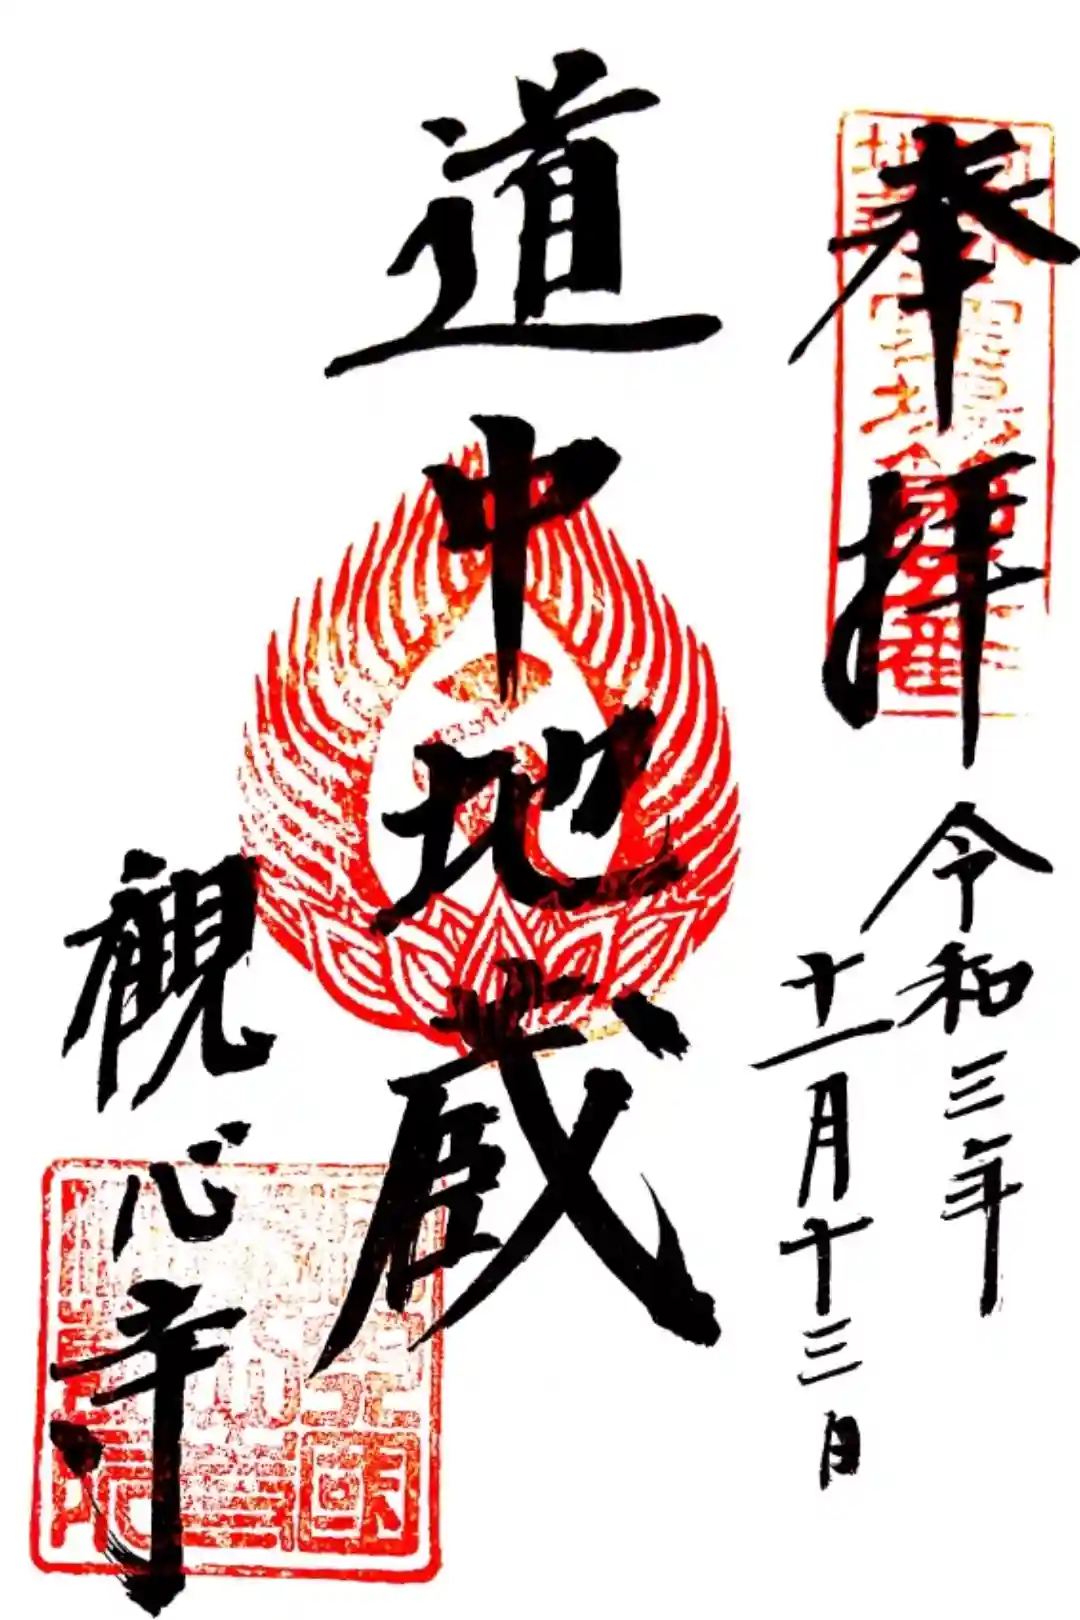 奉拝
令和三年
十一月十三日
道中地蔵
観心寺